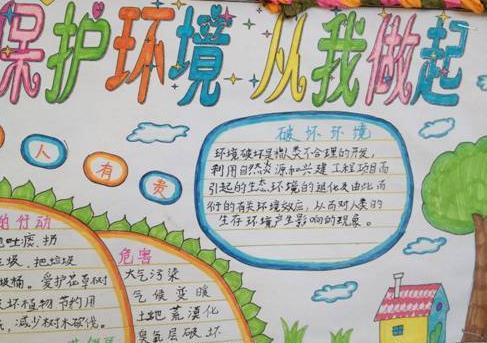 保护环境 从我做起
人 有 责
破坏环境
环境破坏是指人类不合理的开发,
利用自然资源和兴建工程项目而
引起的生态环境的退化及由此而
衍的有关环境效应,从而对人类的
生存环境产生影响的现象。
的行动
地吐痰、扔
垃圾、把垃圾
圾桶。爱护花草树
坏植物 节约用
,减少树木砍伐。
危害
大气污染
气候变暖
土地荒漠化
臭氧层破坏